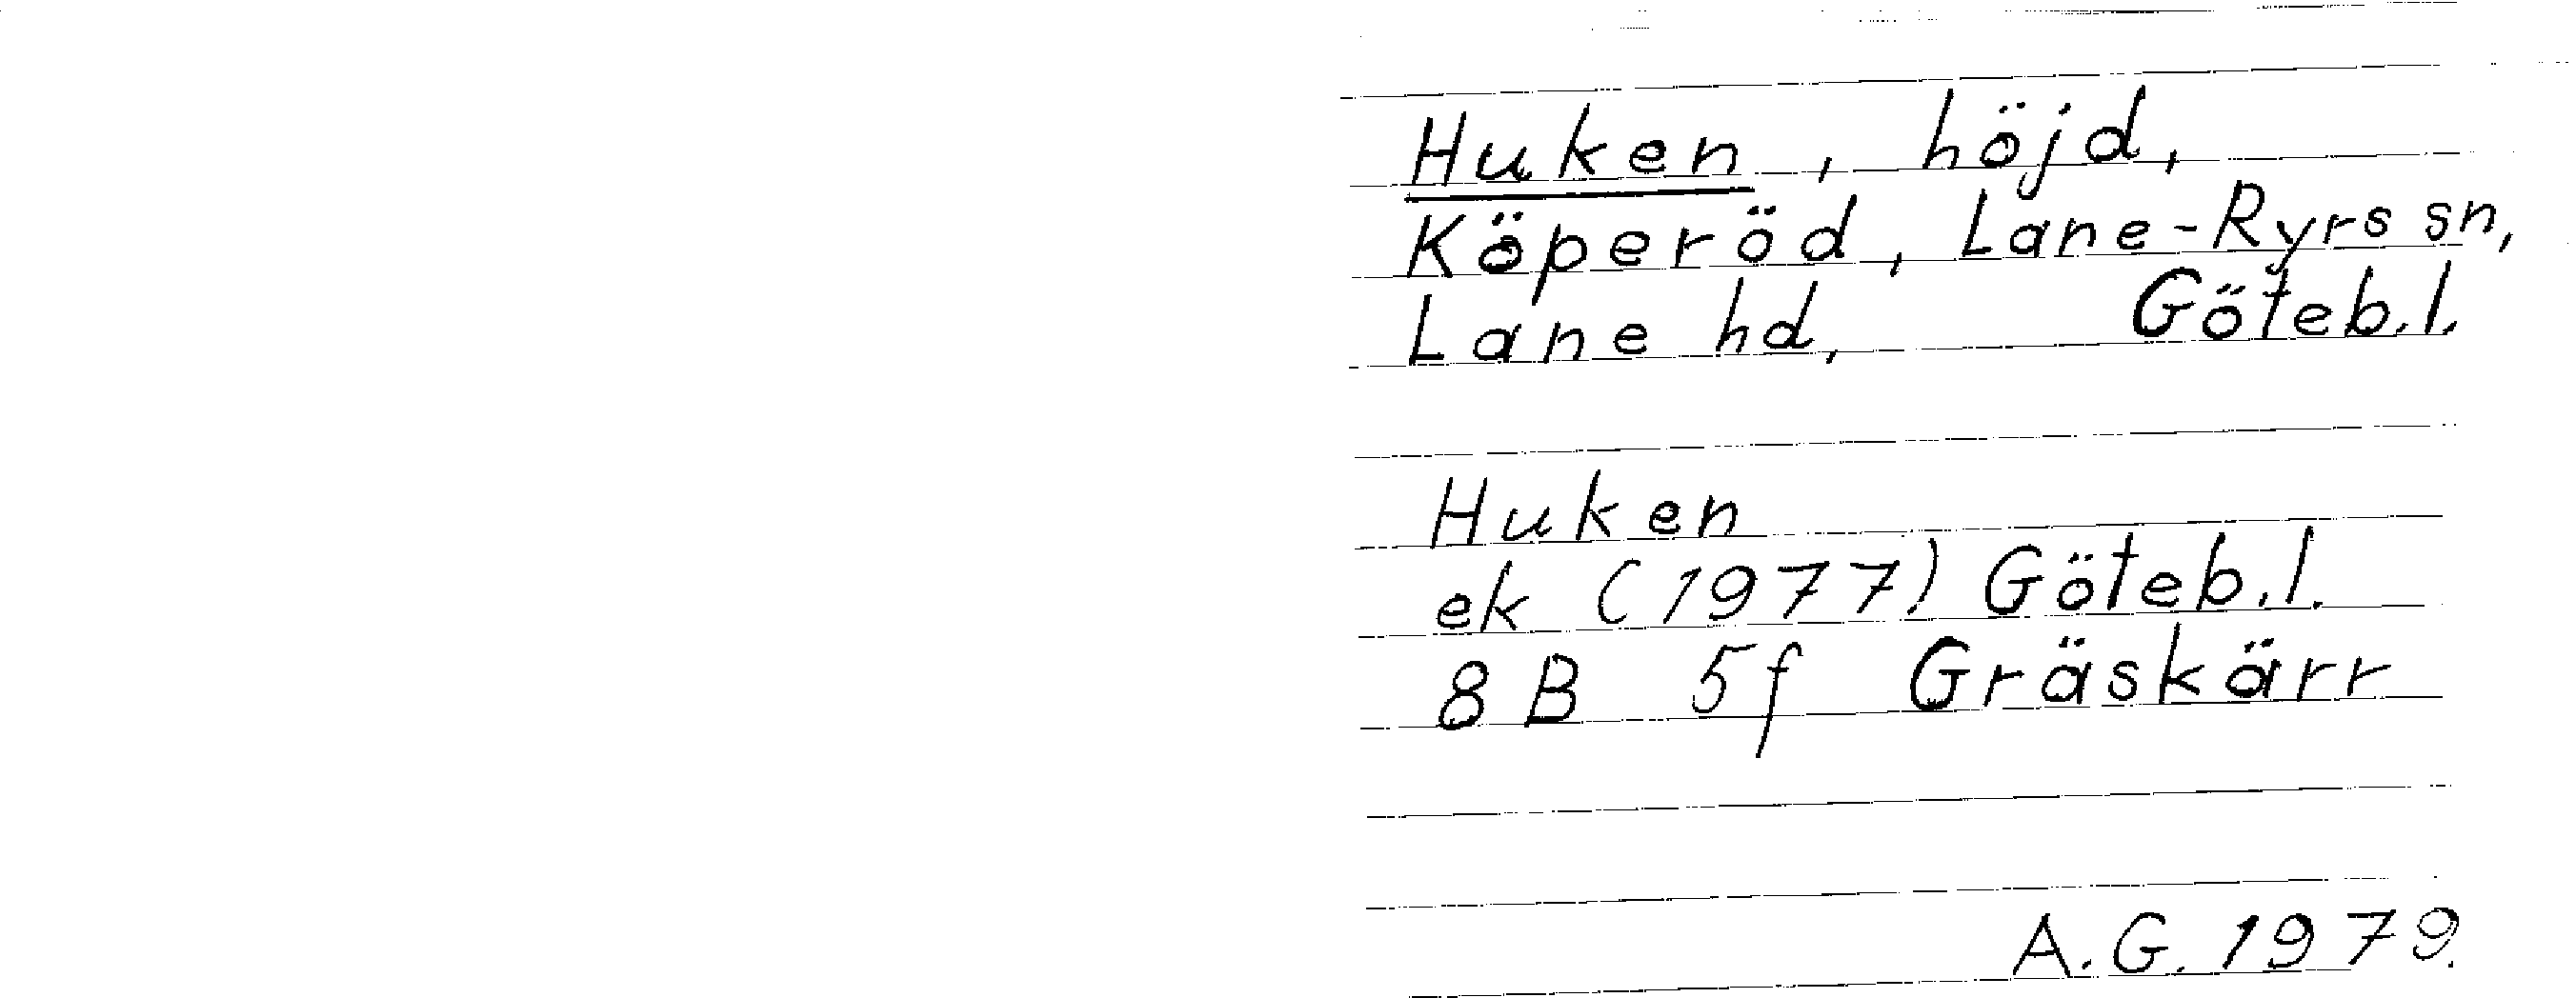 Huken, höjd,
Köperöd, Lane-Ryrs sn,
Lane hd, Göteb.l.
Huken
ek (1977) Göteb.l.
8 B 5f Gräskärr
A.G. 1979.